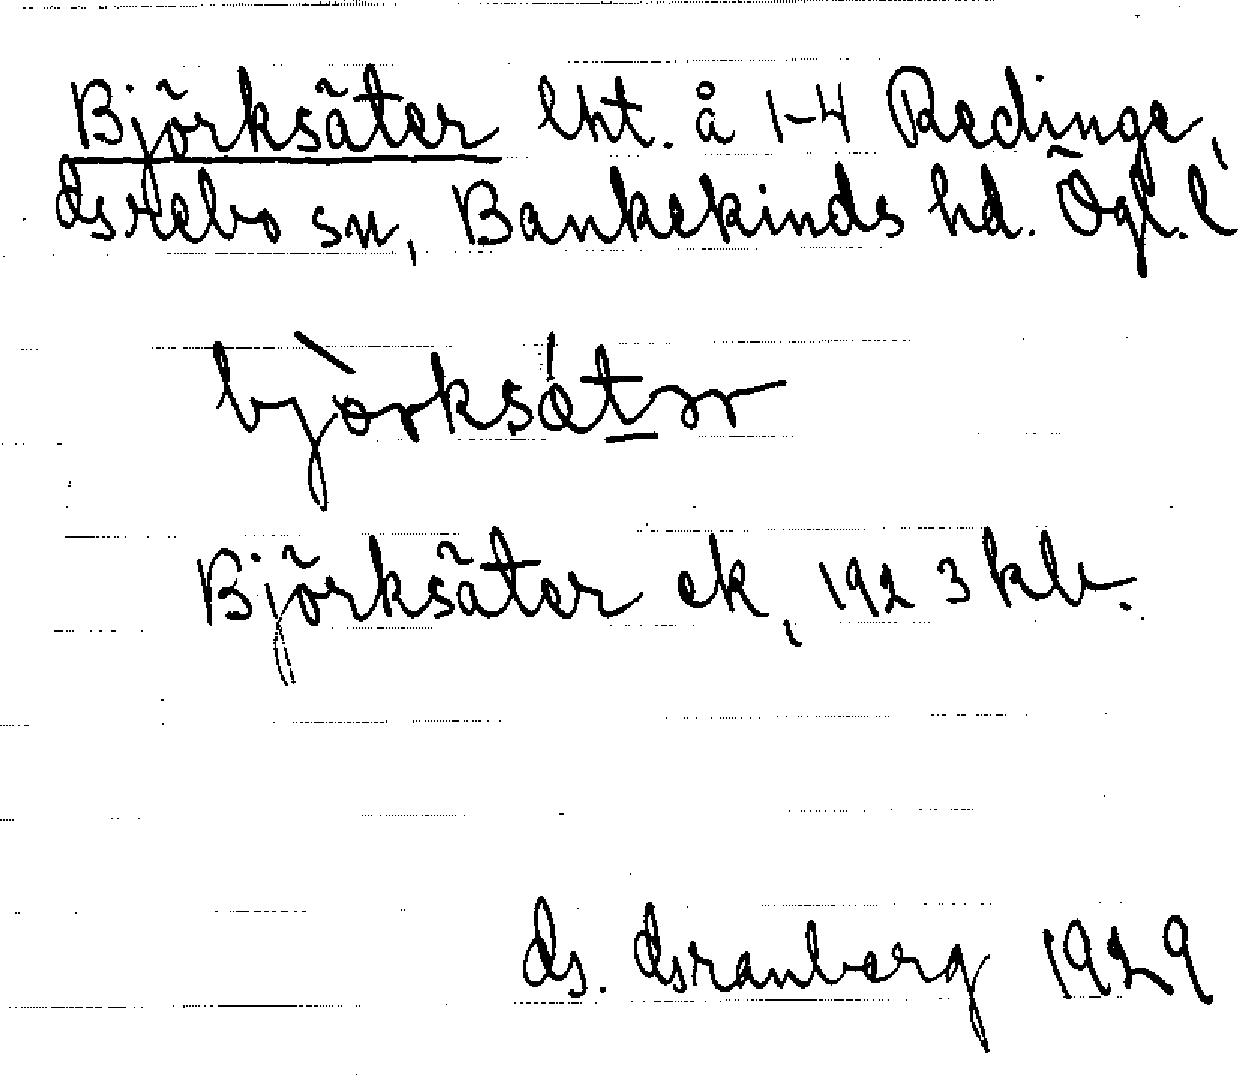 Björksäter lht. å 1-4 Redinge,
Grebo sn, Bankekinds hd. Ögl. l
bjò̀rksǻtər
Björksäter ek, 1923 klr.
G. Granberg 1929